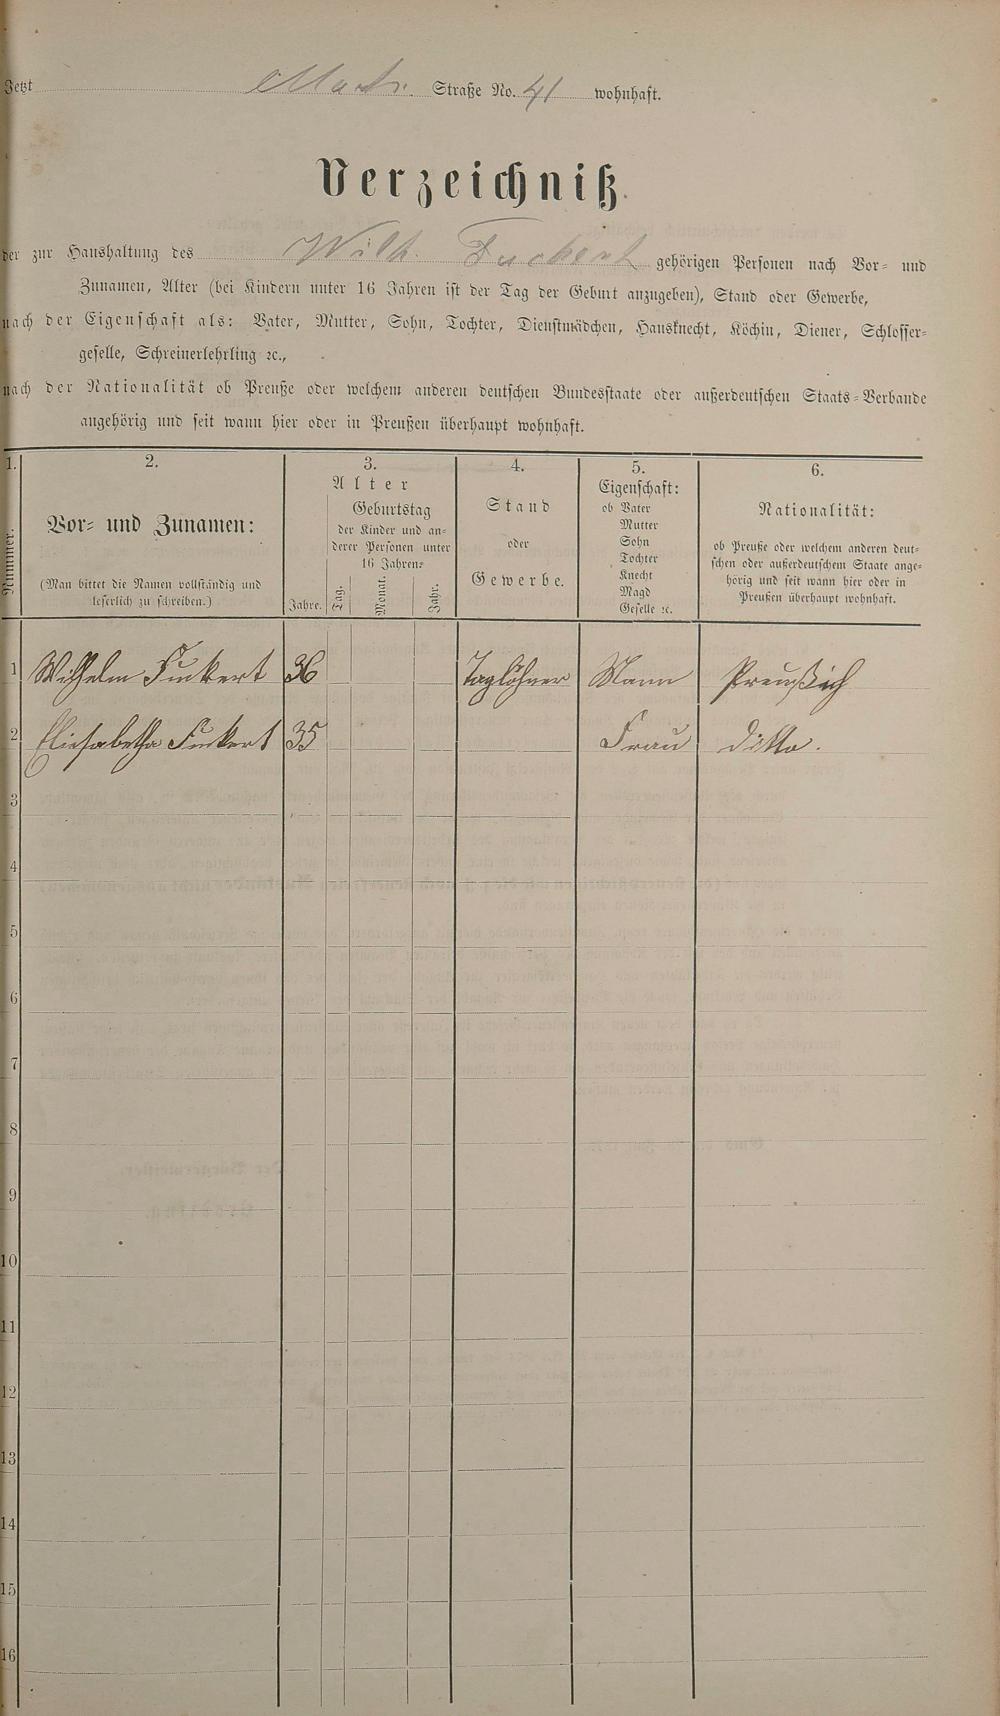 Jetzt Straße No. 41 wohnhaft.
Verzeichniß
der zur Haushaltung des Wilh. gehörigen Personen nach Vor- und
Zunamen, Alter (bei Kindern unter 16 Jahren ist der Tag der Geburt anzugeben), Stand oder Gewerbe,
nach der Eigenschaft als: Vater, Mutter, Sohn, Tochter, Dienstmädchen, Hausknecht, Köchin, Diener, Schlosser-
geselle, Schreinerlehrling ꝛc.,
nach der Nationalität ob Preuße oder welchem anderen deutschen Bundesstaate oder außerdeutschen Staats-Verbande
angehörig und seit wann hier oder in Preußen überhaupt wohnhaft.
1. 2. 3. 4. 5. 6.
Nummer.
Vor- und Zunamen:
(Man bittet die Namen vollständig und
leserlich zu schreiben.)
Alter
Jahre.
Geburtstag
der Kinder und an-
derer Personen unter
16 Jahren:
Tag. Monat. Jahr.
Stand
oder
Gewerbe.
Eigenschaft:
ob Vater
Mutter
Sohn
Tochter
Knecht
Magd
Geselle ꝛc.
Nationalität:
ob Preuße oder welchem anderen deut-
schen oder außerdeutschem Staate ange-
hörig und seit wann hier oder in
Preußen überhaupt wohnhaft.
1 Wilhelm 36 Taglöhner Mann Preußich
2 Eliesabetha 35 Frau ditto.
3
4
5
6
7
8
9
10
11
12
13
14
15
16